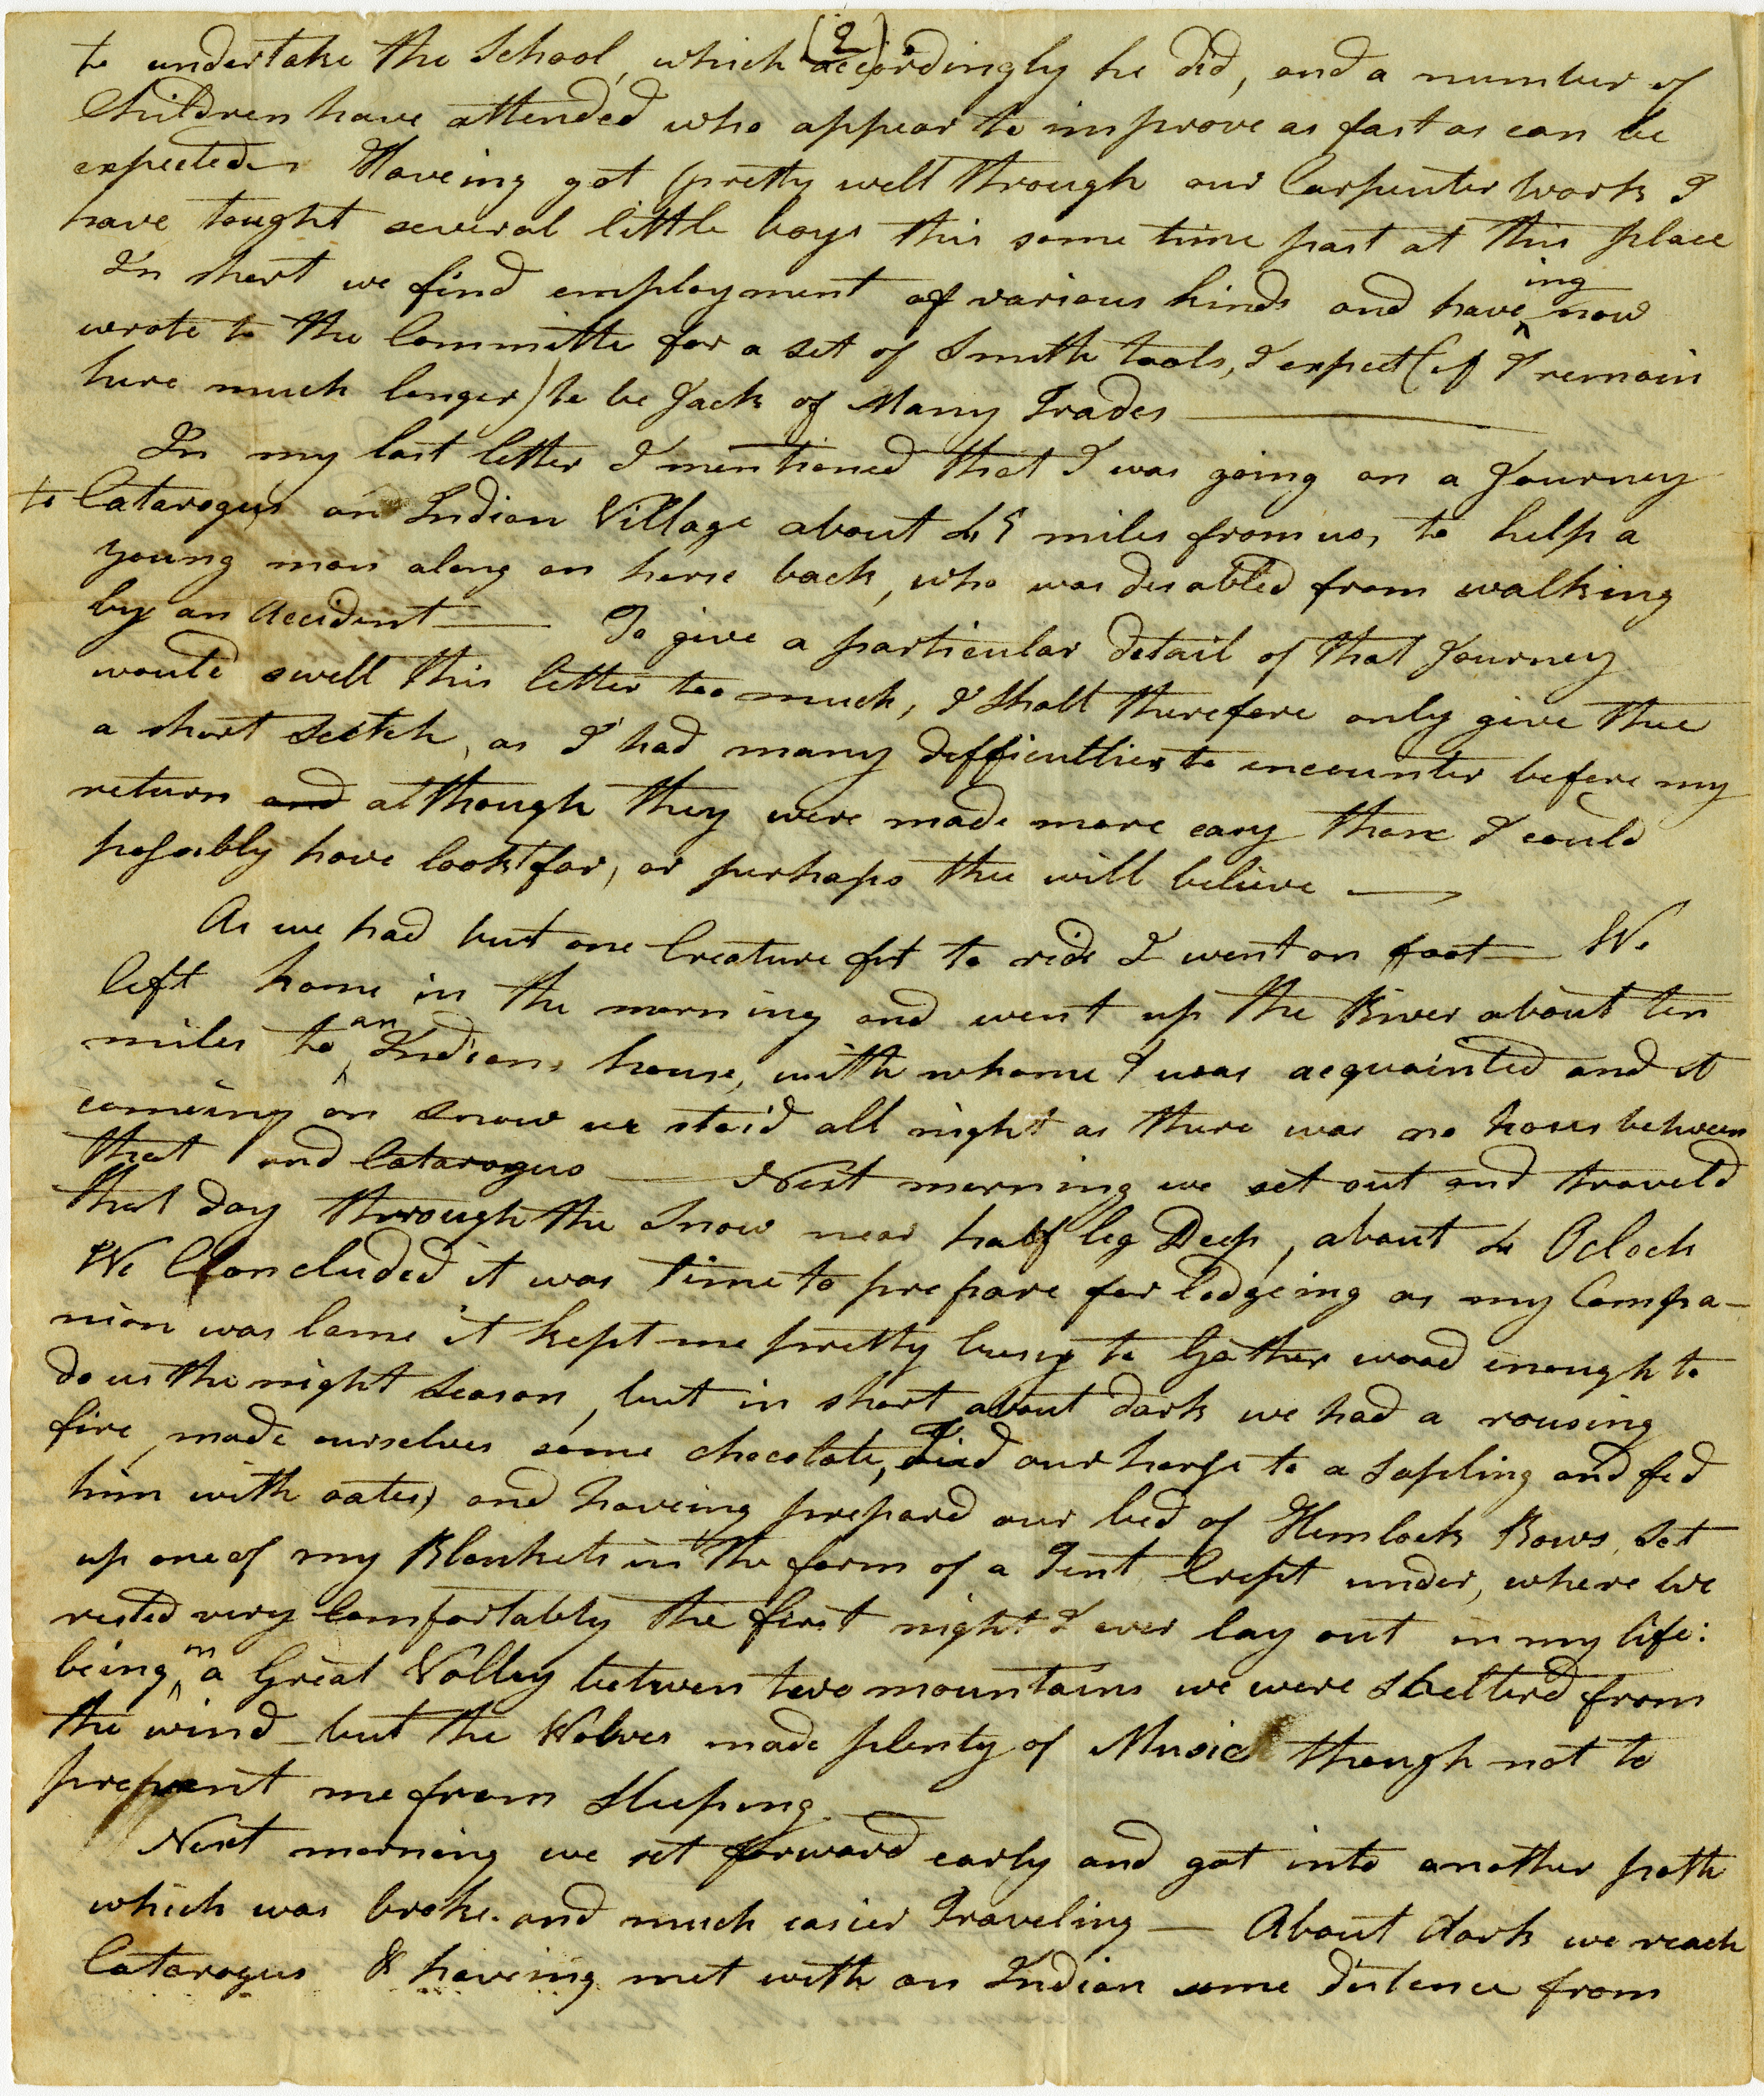 (2)
to undertake the School, which accordingly he did, and a number of
Children have attended who appear to improve as fast as can be
expected. Haveing got pretty well through our Carpenter work I
have tought several little boys this some time past at this place
In short we find employment of various kinds and have^ing now
wrote to the Committe for a set of Smith tools, I expect (if I remain
here much longer) to be Jack of Many Trades ———
In my last letter I mentioned that I was going on a Journey
to Catarogus an Indian Village about 45 miles from us, to help a
young man along on horse back, who was disabled from walking
by an Accident — To give a particular detail of that Journey
would swell this letter too much, I shall therefore only give thee
a short Scetch, as I had many difficulties to encounter before my
return and although they were made more easy than I could
possibly have look't for, or perhaps thee will believe —
As we had but one Creature fit to ride I went on foot — We
left home in the morning and went up the River about ten
miles to ^an Indians house, with whome I was acquainted and it
comeing on snow we staid all night as there was no hous between
that and Catarogus — Next morning we set out and traveld
that day through the Snow near half leg Deep, about 4 Oclock
We Concluded it was time to prepare for lodgeing as my Compa-
nion was lame it kept me pretty busy to Gather wood enough to
do us the night Season, but in short about dark we had a rousing
fire, made ourselves some chocolate, Tied our horse to a Sapling and fed
him with oates, and haveing prepard our bed of Hemlock Bows, Set
up one of my Blankets in the form of a Tent Crept under, where we
rested very Comfortably the first night I ever lay out in my life:
being ^in a Great Valley between two mountains we were Shelterd from
the wind – but the Wolves made plenty of Music though not to
prevent me from Sleeping. —
Next morning we set forward early and got into another path
which was broke. and much easier Traveling — About dark we reach
Catarogus & haveing met with an Indian some distence from